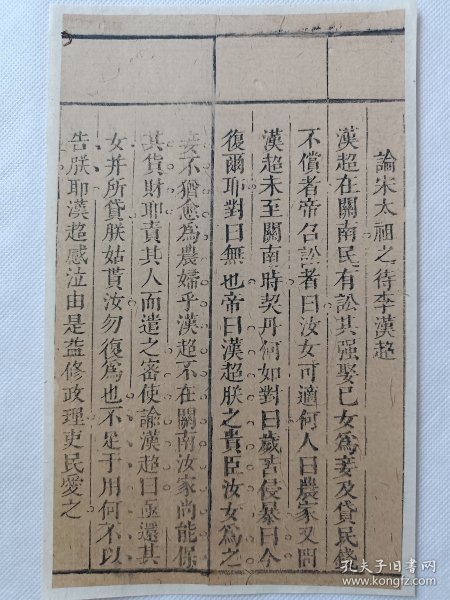 論宋太祖之待李漢超
漢超在關南民有訟其强娶已女為妾及貸民錢
不償者帝召訟者曰汝女可適何人曰農家又問
漢超未至關南時契丹何如對曰歲苦侵暴曰今
復爾耶對曰無也帝曰漢超朕之貴臣汝女為之
妾不猶愈為農婦乎漢超不在關南汝家尚能保
其貨財耶責其人而遣之密使諭漢超曰亟還其
女并所貸朕姑貰汝勿復為也不足于用何不以
告朕耶漢超感泣由是益修政理吏民愛之
孔夫子旧书网
book.kongfz.com